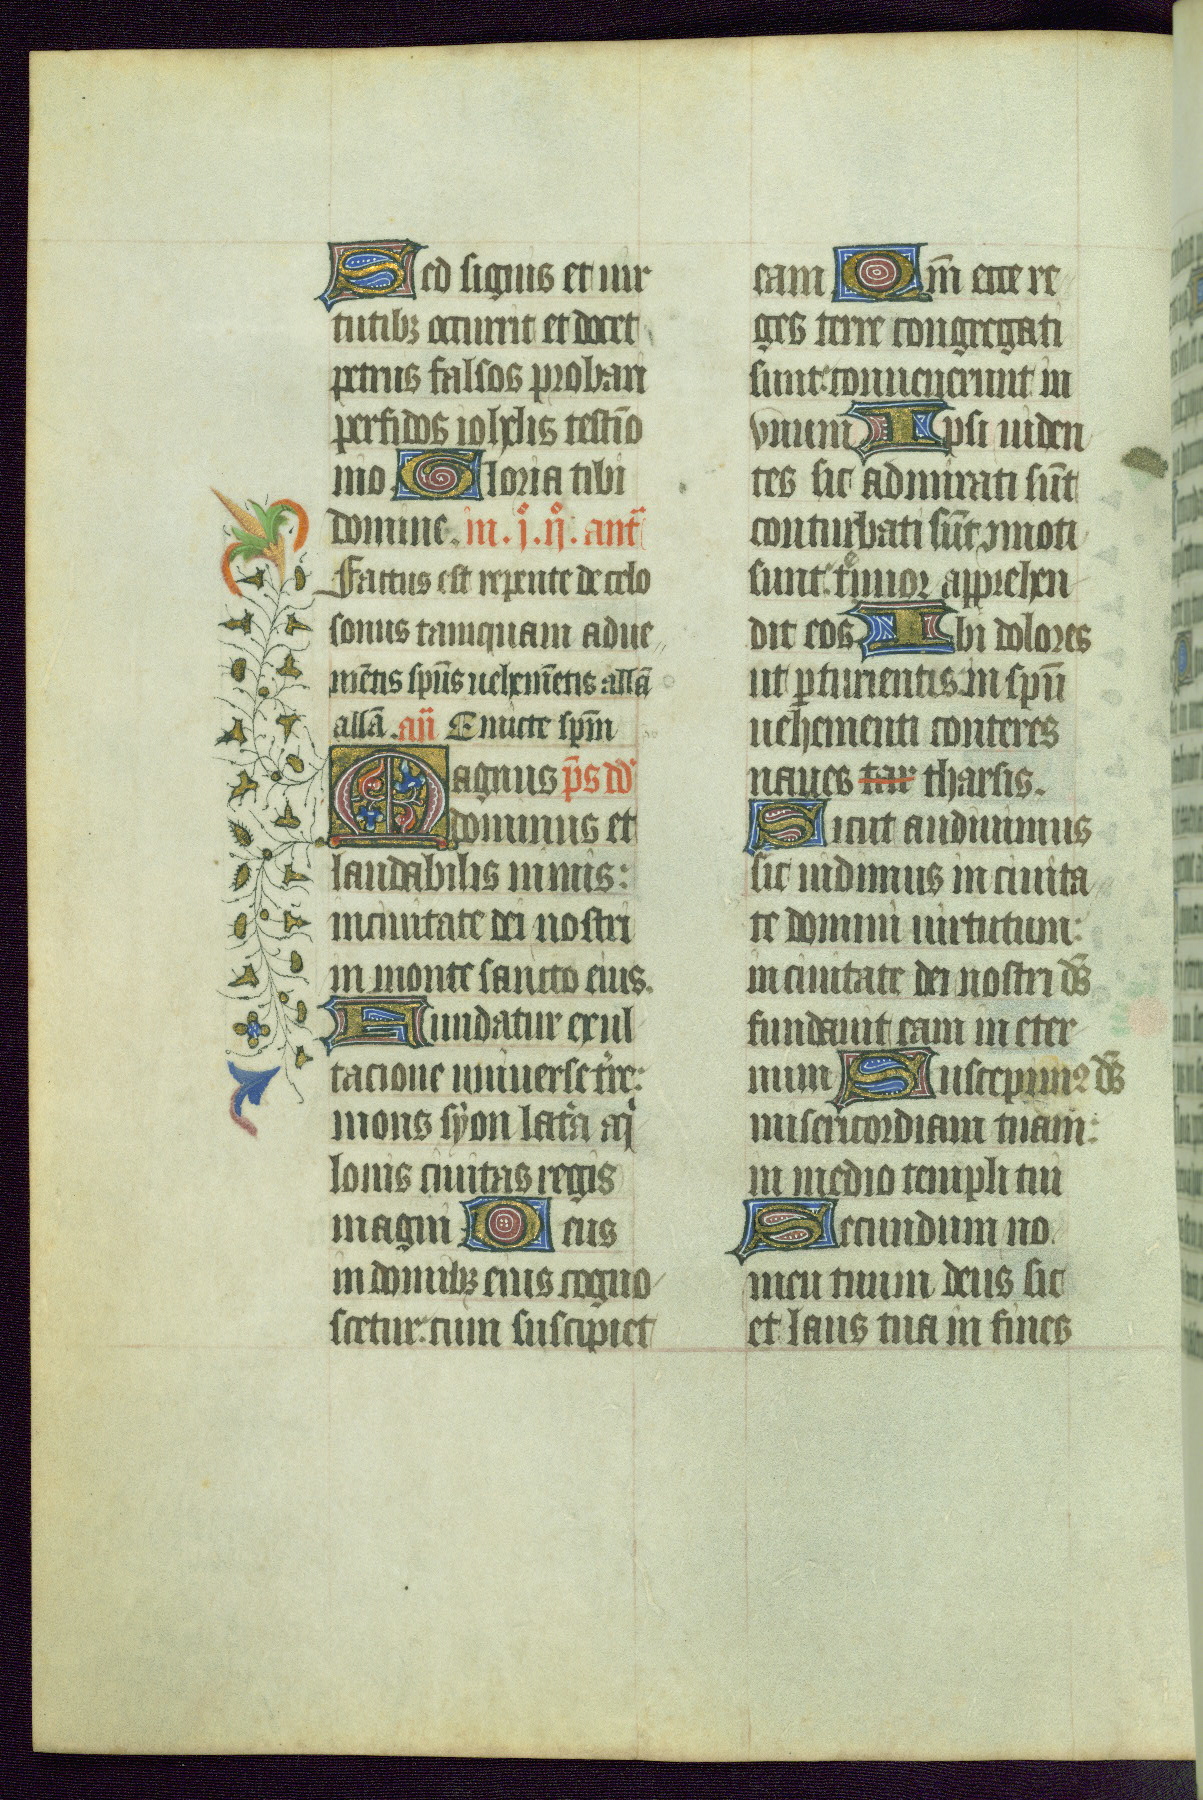 Sed signis et uir
tutibꝫ occurrit et docet
petrus falsos probari
perfidos iohelis testīo
nio. Gloria tibi
domine. in. j. n̊. ant̃
Factus est repente de celo
sonus tamquam adue
niētis spūs uehemētis allã
allã. aij Emitte spm̄
Magnus p̄s dd̾
dominus et
laudabilis nimis:
in ciuitate dei nostri
in monte sancto eius.
Fundatur exul
tacione uniuerse tr̄e:
mons syon latera aq̇
lonis ciuitas regis
magni Deus
in domibꝫ eius cogno
scetur: cum suscipiet
eam Qm̄ ecce re
ges terre congregati
sunt: conuenerunt in
vnum Ipsi uiden
tes sic admirati sūt
conturbati sūt ꝯmoti
sunt: timor apprehen
dit eos Ibi dolores
ut ꝑturientis: in spū
uehementi conteres
naues tar tharsis.
Sicut audiuimus
sic uidimus in ciuita
te domini uirtutum:
in ciuitate dei nostri dē
fundauit eam in eter
num Suscepimꝰ dē
misericordiam tuam:
in medio templi tui
Secundum no
men tuum deus sic
et laus tua in fines